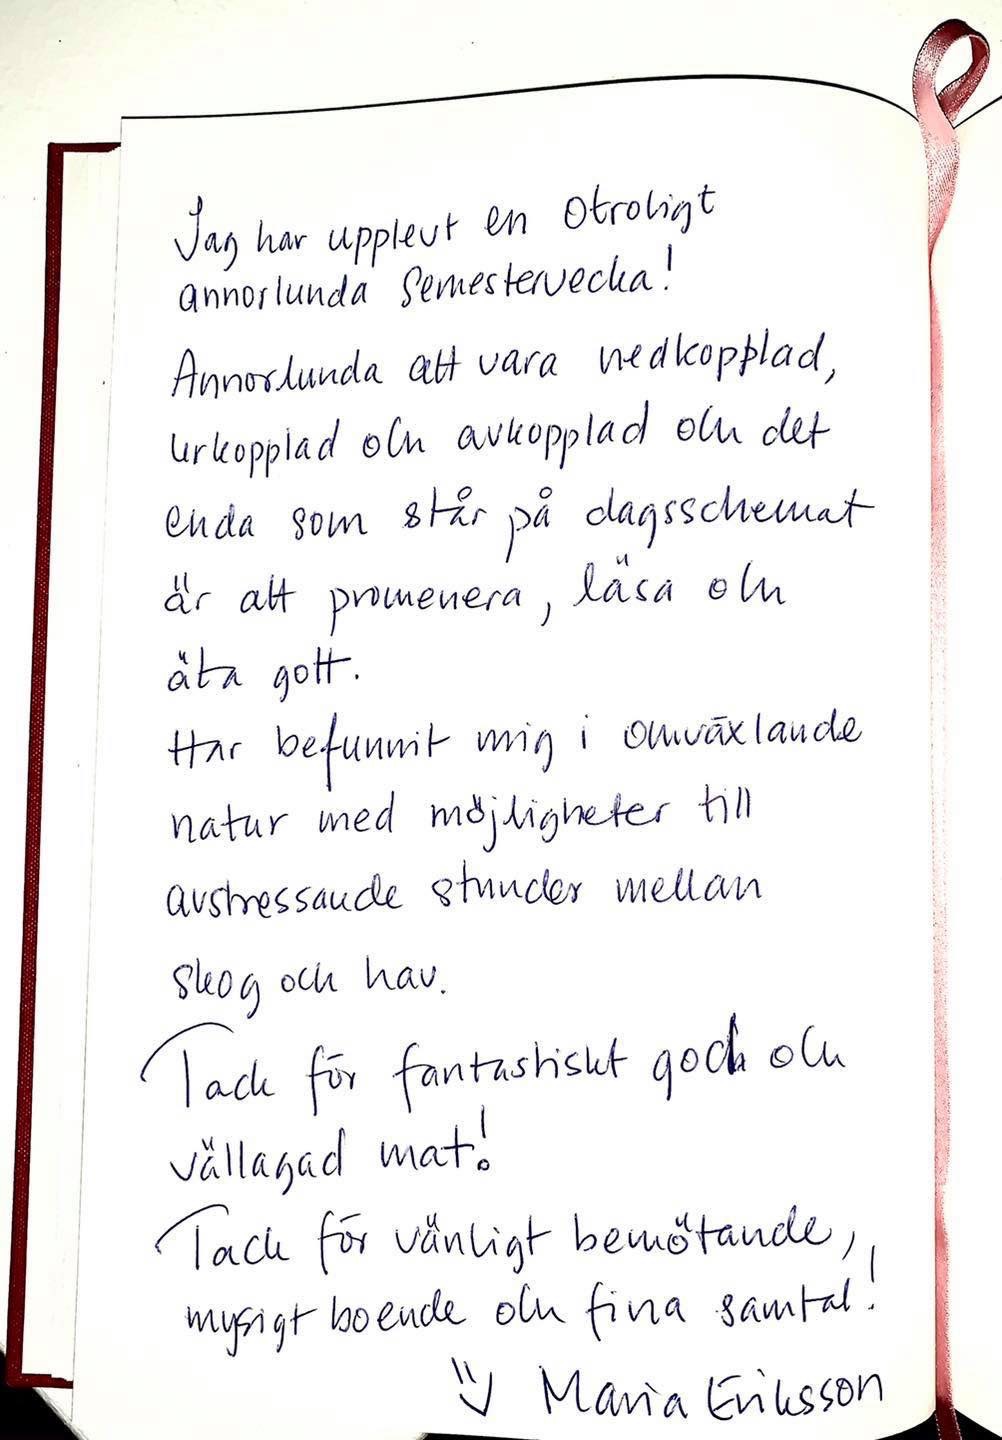 Jag har upplevt en otroligt
annorlunda semestervecka!
Annorlunda att vara nedkopplad,
urkopplad och avkopplad och det
enda som står på dagsschemat
är att promenera, läsa och
äta gott.
Har befunnit mig i omväxlande
natur med möjligheter till
avstressande stunder mellan
skog och hav.
Tack för fantastiskt god och
vällagad mat!
Tack för vänligt bemötande,
mysigt boende och fina samtal!
Maria Eriksson